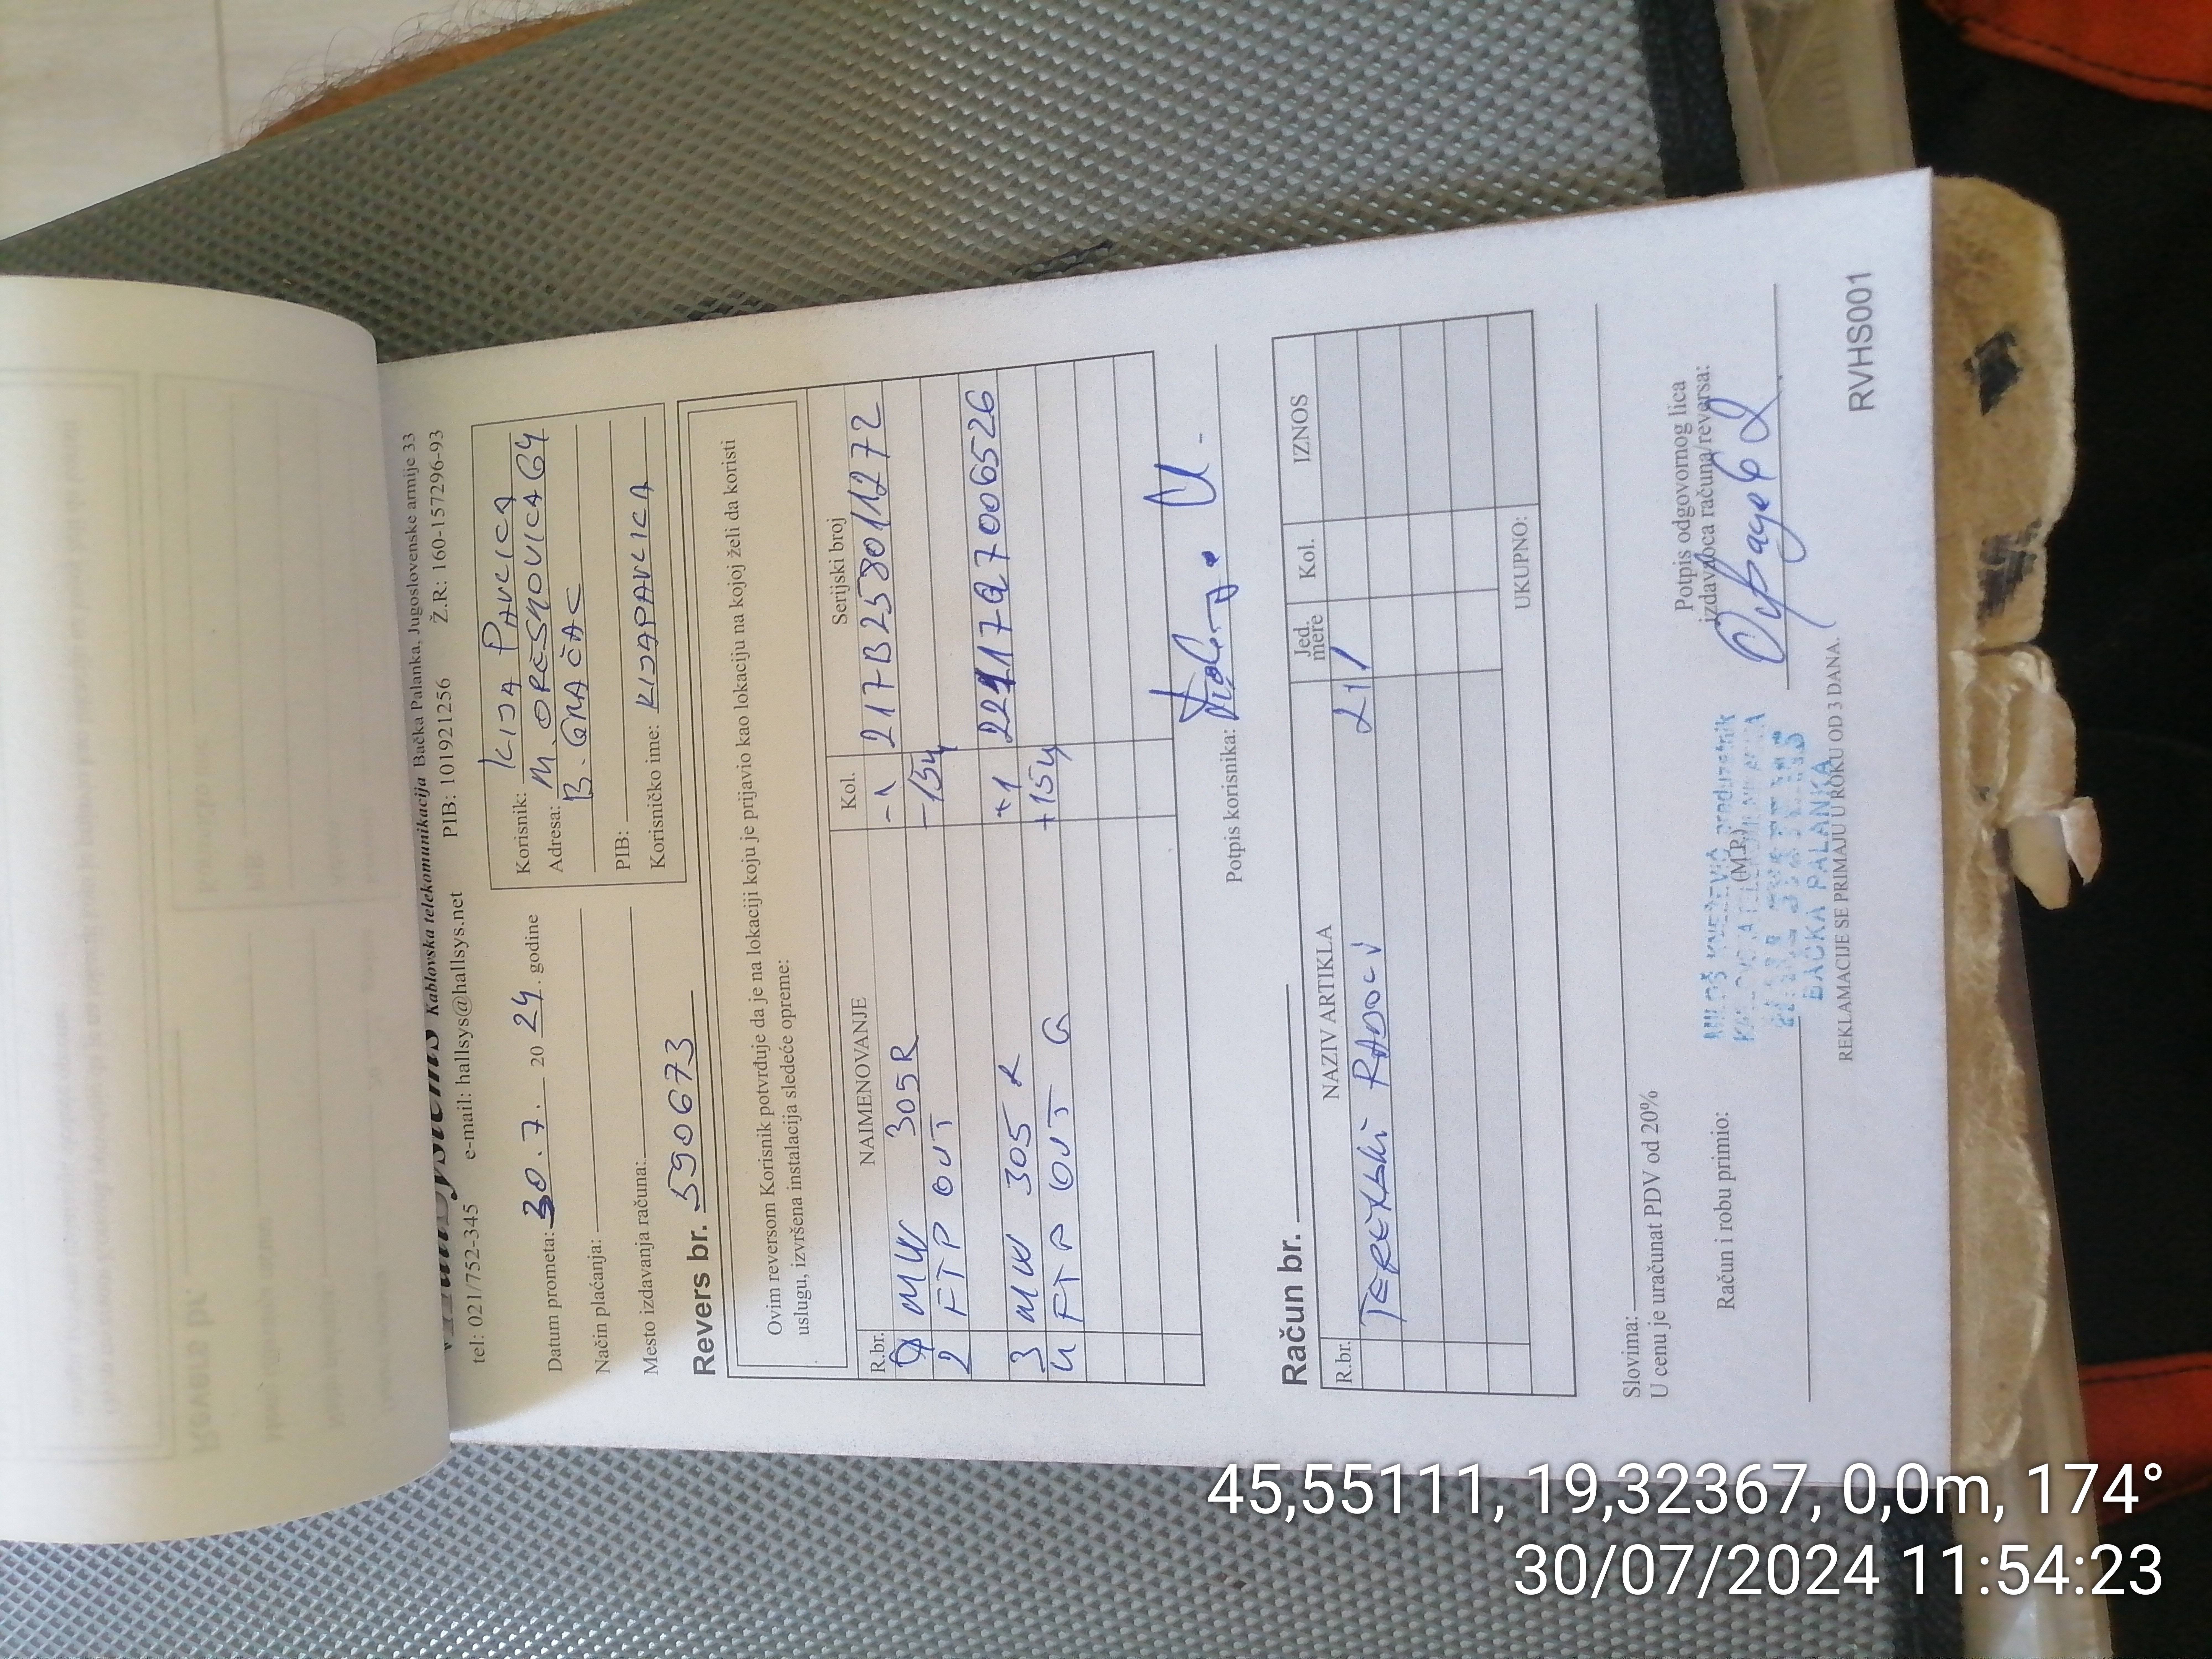 HallSystems Kablovska telekomunikacija Bačka Palanka, Jugoslovenske armije 33
tel: 021/752-345 e-mail: hallsys@hallsys.net PIB: 101921256 Ž.R.: 160-157296-93
Datum prometa: 30.7. 20 24. godine
Način plaćanja:
Mesto izdavanja računa:
Korisnik: KIJA PAVLICA
Adresa: M. OREŠKOVICA 64
B. GRAČAC
PIB:
Korisničko ime: KIJAPAVLICA
Revers br. 590673
Ovim reversom Korisnik potvrđuje da je na lokaciji koju je prijavio kao lokaciju na kojoj želi da koristi
uslugu, izvršena instalacija sledeće opreme:
R.br. NAIMENOVANJE Kol. Serijski broj
MW 305R -1 217B258011272
2 FTP OUT -15m
3 MW 305R +1 22117Q7006526
4 FTP OUT G +15m
Potpis korisnika:
Račun br.
R.br. NAZIV ARTIKLA Jed. mere Kol. IZNOS
TERENSKI RADOVI 21/
UKUPNO:
Slovima:
U cenu je uračunat PDV od 20%
Račun i robu primio:
(M.P.)
Potpis odgovornog lica
izdavaoca računa/reversa:
MILOŠ KNEŽEVIĆ preduzetnik
BAČKA PALANKA
REKLAMACIJE SE PRIMAJU U ROKU OD 3 DANA.
RVHS001
45,55111, 19,32367, 0,0m, 174°
30/07/2024 11:54:23